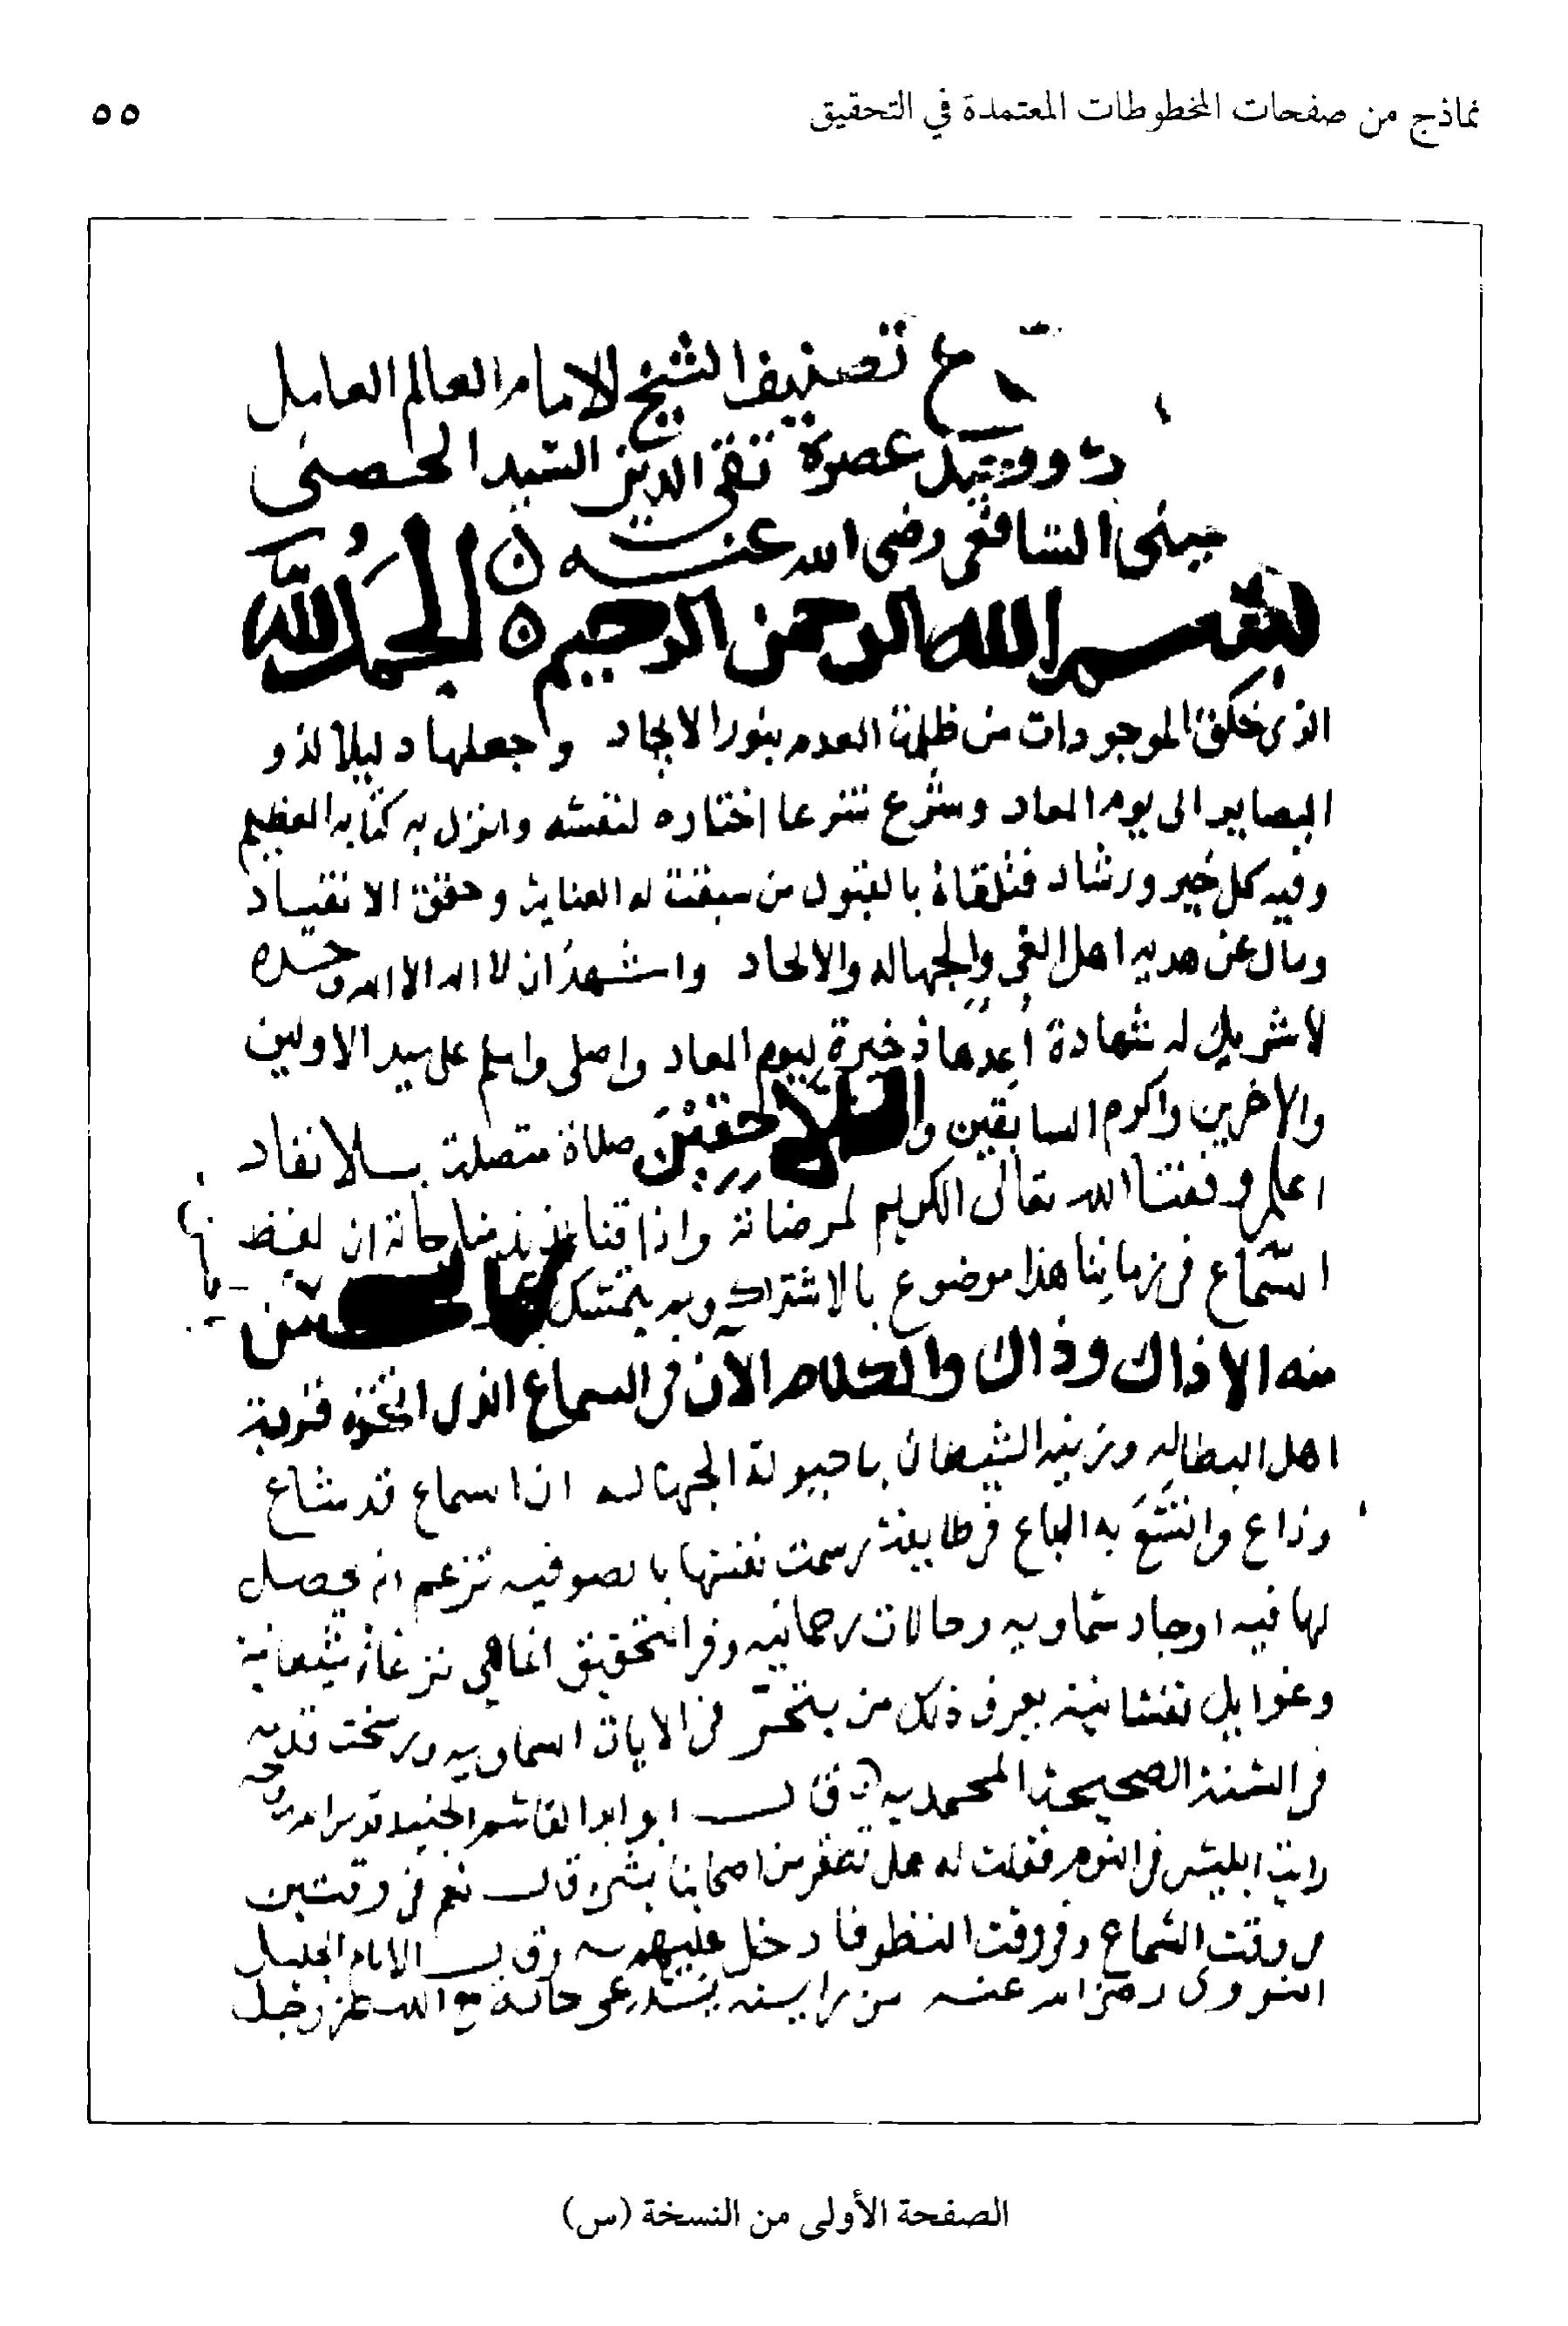 نماذج من صفحات المخطوطات المعتمدة في التحقيق
٥٥
تصنيف الشيخ الامام العالم العامل
عصره تقي الدين السيد الحصني
الشافعي رضي الله عنه
بسم الله الرحمن الرحيم الحمد لله
الذي خلق الموجودات من ظلمة العدم بنور الايجاد وجعلها دليلا لذو
البصاير الى يوم المعاد وشرع شرعا اختاره لنفسه وانزل به كتابه العظيم
وفيه كل خير ورشاد فتلقاه بالقبول من سبقت له العناية وحقق الانقياد
ومال عن هديه اهل الغي والجهاله والالحاد واشهد ان لا اله الا الله وحده
لا شريك له شهادة اعدها ذخيرة ليوم المعاد واصلي واسلم على سيد الاولين
والاخرين واكرم السابقين واللاحقين صلاة متصلة بلا نفاد
اعلم وفقنا الله تعالى الكريم لمرضاته واذاقنا لذيذ مناجاته ان لفظ
السماع في زماننا هذا موضوع بالاشتراك وبه يتمسك
منه الا ذاك وذاك والكلام الآن في السماع الذي اتخذه قربة
اهل البطاله وزينه الشيطان باحبولة الجهاله ان اسماع قد شاع
وذاع به البقاع في طايفة رسمت نفسها بالصوفيه تزعم انه يحصل
لها فيه اوجاد سماويه وحالات رحمانيه وفي التحقيق انما هي نزغات شيطانية
وغوايل نفسانية يعرف ذلك من يتبحر في الايات السماويه ورسخت قدمه
في السنة الصحيحة المحمديه قال ابو القاسم الجنيد قدس الله روحه
رايت ابليس في النوم فقلت له هل تظفر من اصحابنا بشيء قال نعم في وقتين
وقت السماع وفي وقت النظر فادخل عليهم به وقال الامام الجليل
النووي رضي الله عنه من رايته يدعي حالة مع الله عز وجل
الصفحة الأولى من النسخة (س)